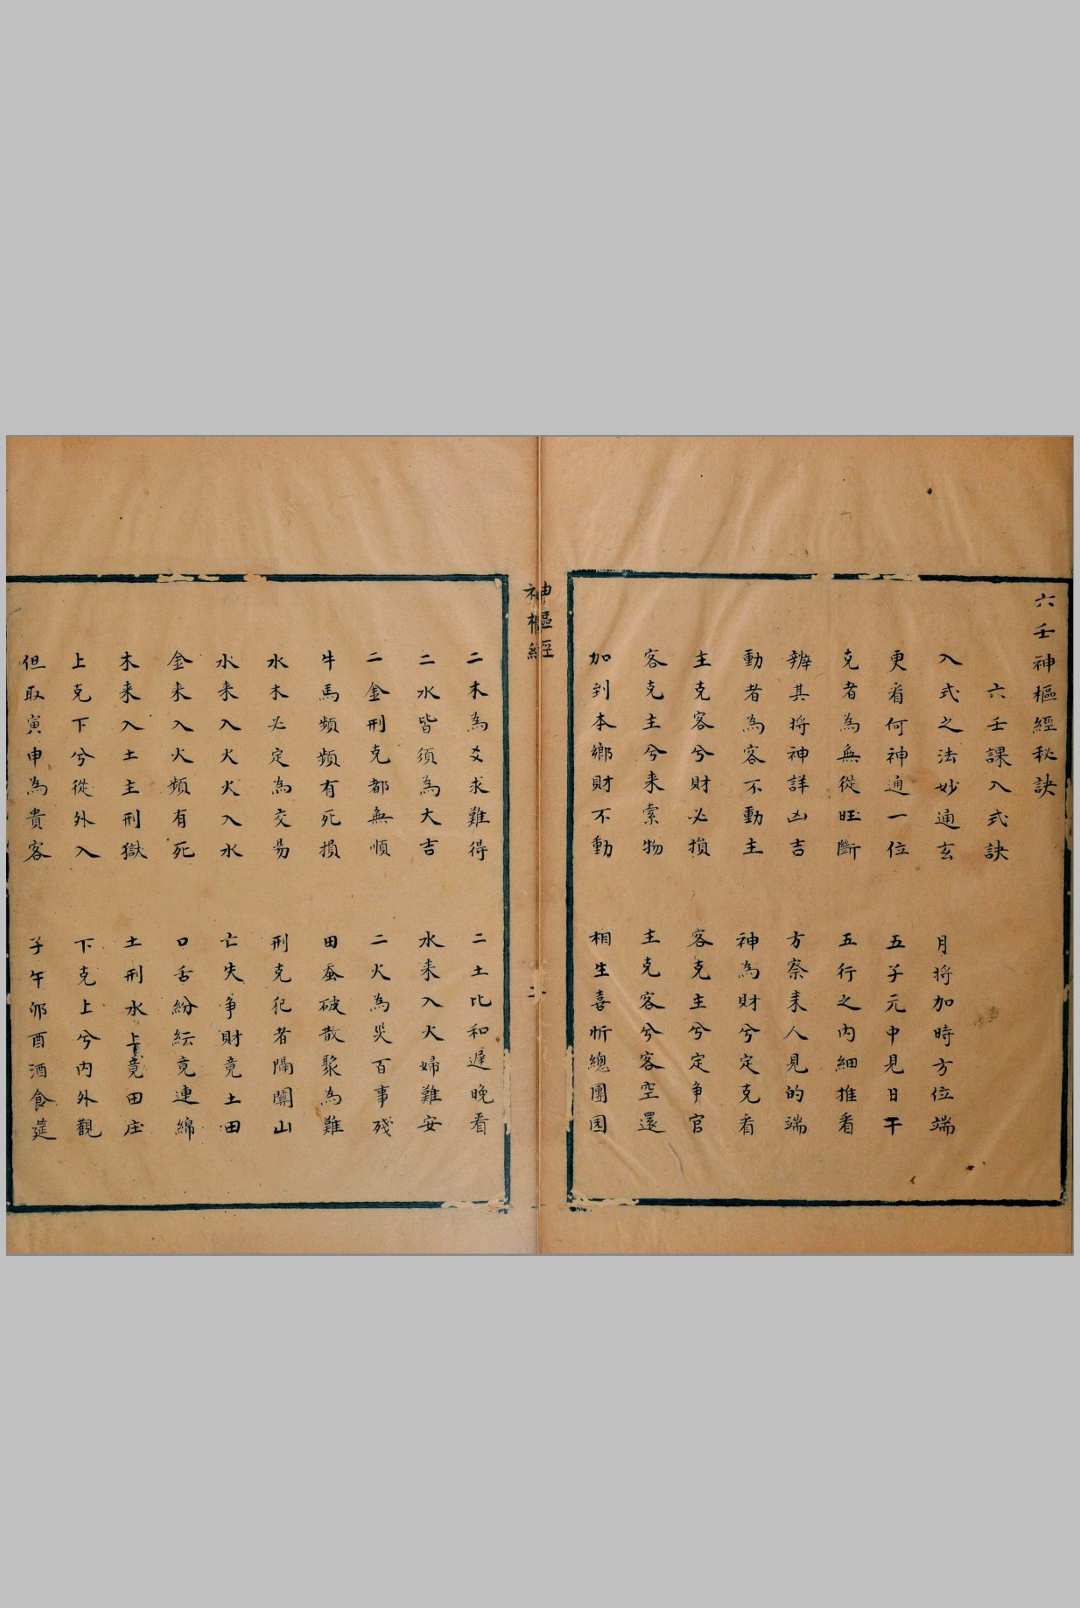 六壬神樞經秘訣
六壬課入式訣
入式之法妙通玄 月將加時方位端
更看何神通一位 五子元中見日干
克者為無從旺斷 五行之內細推看
辨其将神詳凶吉 方察来人見的端
動者為客不動主 神為財兮定克看
主克客兮財必損 客克主兮定争官
客克主兮来索物 主克客兮客空還
加到本鄉財不動 相生喜忻總團圆
神樞經
二
二木為爻求難得 二土比和遲晚看
二水皆須為大吉 水来入火婦難安
二金刑克都無順 二火為災百事殘
牛馬頻頻有死損 田蚕破散聚為難
水木必定為交易 刑克犯者隔關山
水来入火火入水 亡失争財竟土田
金来入火頻有死 口舌紛紜竟連綿
木来入土主刑獄 土刑水上竟田庄
上克下兮從外入 下克上兮内外觀
但取寅申為貴客 子午卯酉酒食筵